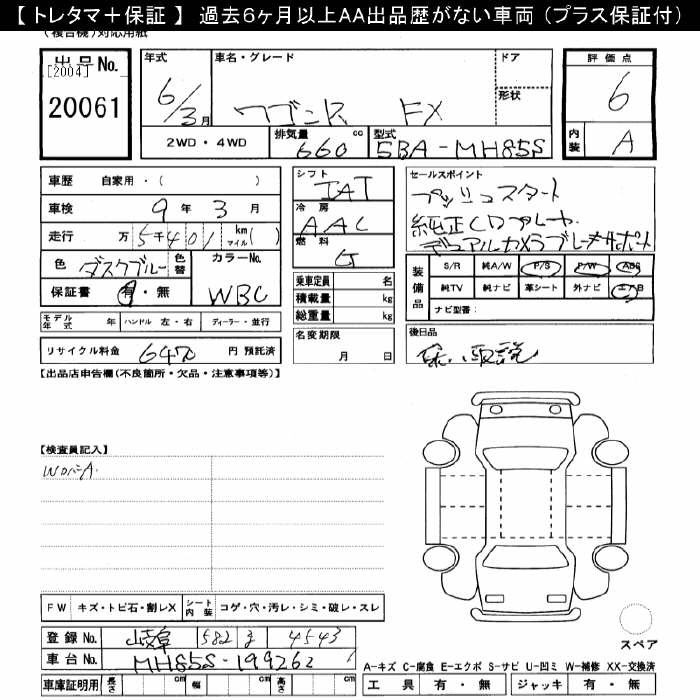 【 トレタマ＋保証 】 過去6ヶ月以上AA出品歴がない車両 (プラス保証付)
(複合機)対応用紙
出品No.
[2004]
20061
年式
6/3月
車名・グレード
ワゴンR FX
ドア
形状
2WD・4WD
排気量 660 cc
型式 5BA-MH85S
評価点
6
内装 A
車歴 自家用・( )
車検 9年 3月
走行 万5千401 km マイル( )
色 ダスクブルー 色替
カラーNo. WBC
保証書 有・無
モデル年式 年 ハンドル 左・右 ディーラー・並行
リサイクル料金 6470 円 預託済
シフト IAT
冷房 AAC
燃料 G
乗車定員 名
積載量 kg
総重量 kg
名変期限
月 日
セールスポイント
プッシュスタート
純正CDプレーヤ
デュアルカメラブレーキサポート
装備品
S/R 純A/W P/S P/W ABS
純TV 純ナビ 革シート 外ナビ エアB
ナビ型番:
後日品
保、取説
【出品店申告欄(不良箇所・欠品・注意事項等)】
【検査員記入】
FW キズ・トビ石・割レX シート内装 コゲ・穴・汚レ・シミ・破レ・スレ
登録No. 岐阜 582 4543
車台No. MH85S-199262
車庫証明用 長さ cm 幅 cm 高さ cm
スペア
A-キズ C-腐食 E-エクボ S-サビ U-凹ミ W-補修 XX-交換済
工具 有・無 ジャッキ 有・無